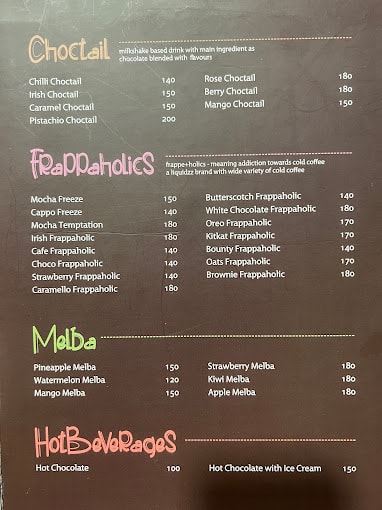 Choctail
milkshake based drink with main ingredient as
chocolate blended with flavours
Chilli Choctail 140
Irish Choctail 150
Caramel Choctail 150
Pistachio Choctail 200
Rose Choctail 180
Berry Choctail 180
Mango Choctail 150
Frappaholics
frappe+holics - meaning addiction towards cold coffee
a liquidzz brand with wide variety of cold coffee
Mocha Freeze 150
Cappo Freeze 140
Mocha Temptation 180
Irish Frappaholic 180
Cafe Frappaholic 140
Choco Frappaholic 140
Strawberry Frappaholic 140
Caramello Frappaholic 180
Butterscotch Frappaholic 140
White Chocolate Frappaholic 180
Oreo Frappaholic 170
Kitkat Frappaholic 170
Bounty Frappaholic 140
Oats Frappaholic 170
Brownie Frappaholic 180
Melba
Pineapple Melba 150
Watermelon Melba 120
Mango Melba 150
Strawberry Melba 180
Kiwi Melba 180
Apple Melba 180
Hot Beverages
Hot Chocolate 100
Hot Chocolate with Ice Cream 150